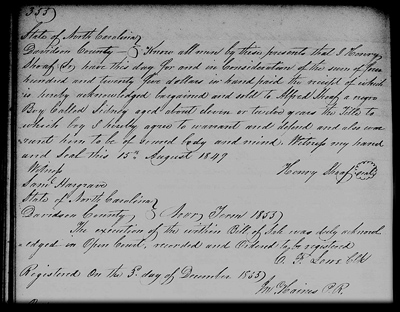 355)
State of North Carolina }
Davidson County — } Know all men by these presents that I Henry
Shoaf Sr have this day for and in consideration of the sum of four
hundred and twenty five dollars in hand paid the receipt of which
is hereby acknowledged bargained and sold to Alfred Shoaf a negro
Boy Called Sidney aged about eleven or twelve years the Title to
which boy I hereby agree to warrant and defend and also war
rant him to be of sound body and mind. Witness my hand
and Seal this 15th August 1849
Witness Henry Shoaf (seal)
Saml Hargrave
State of North Carolina }
Davidson County, } Nov Term 1853)
The execution of the within Bill of Sale was duly acknowl
edged in Open Court, recorded and Ordered to be registered
C. F. Lowe Clk
Registered On the 3d day of December 1853)
Haines P.R.